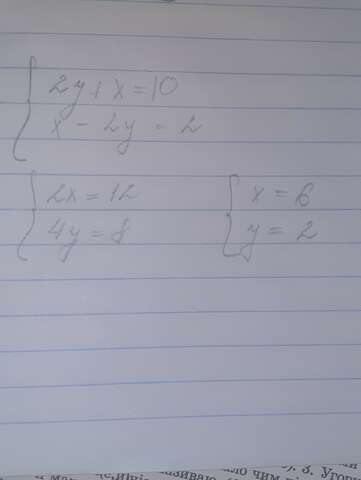 2y + x = 10
x - 2y = 2
2x = 12
4y = 8
x = 6
y = 2